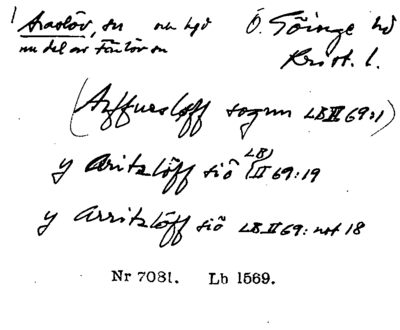 1 Araslöv, sn och by Ö. Göinge hd
nu del av Färlöv sn Krist. l.
(Azffuerslöff sognn LB II 69:1)
y Aritzlöff siö LB II 69:19
y Arritzlöff siö LB II 69: not 18
Nr 7081. Lb 1569.